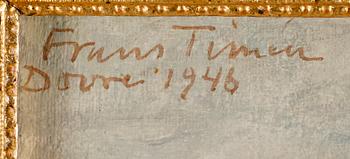 Frans Timén
Dovre 1946